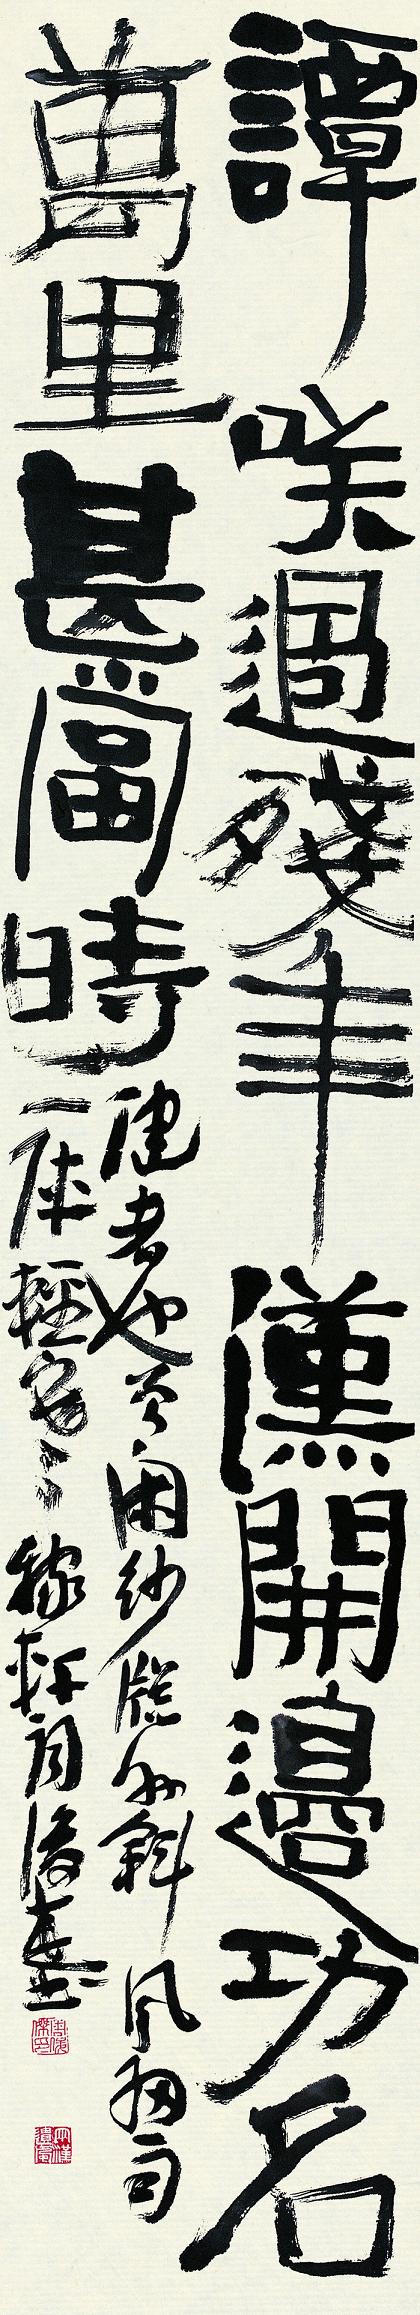 譚咲過殘年漢開邊功名
萬里甚當時
健者也曾閑紗牕外斜風細雨
一陣輕寒 稼軒詞俊書
周俊傑印